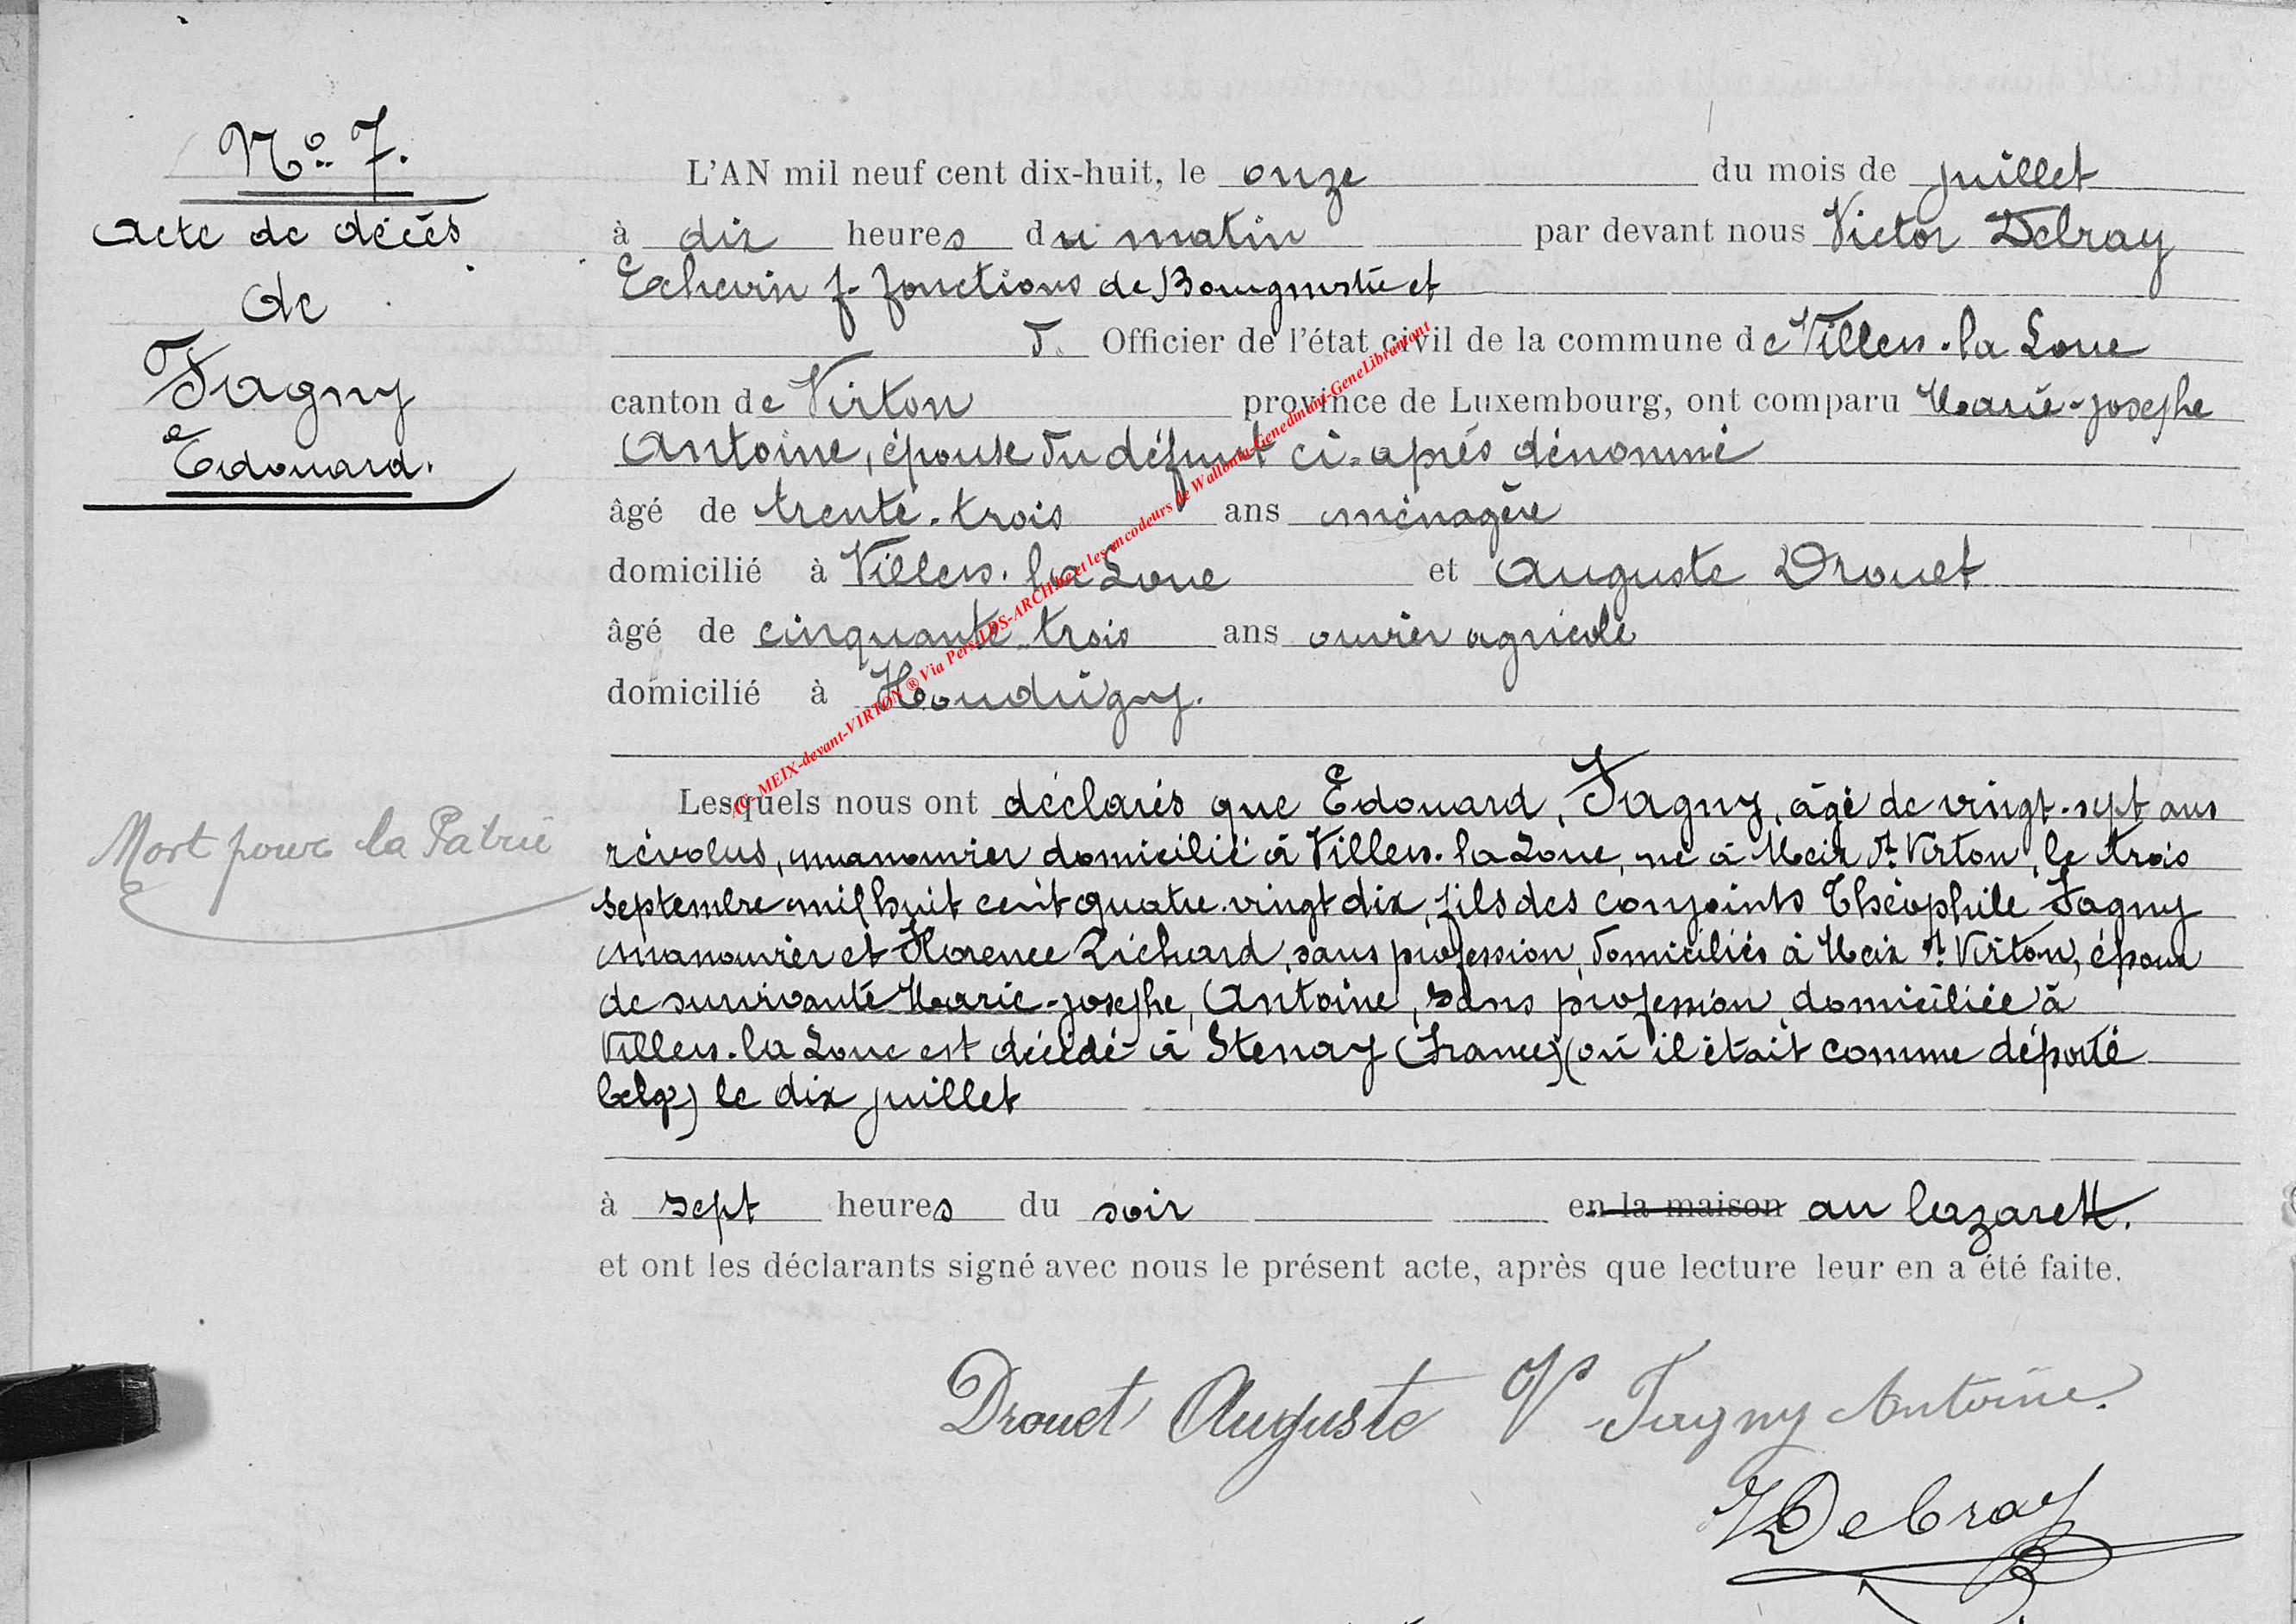 N° 7.
Acte de décès
de
Fagny
Edouard.
Mort pour la Patrie
L'AN mil neuf cent dix-huit, le onze du mois de juillet
à dix heures du matin par devant nous Victor Debray
Echevin f. fonctions de Bourgmestre et
Officier de l'état civil de la commune de Villers-la Loue
canton de Virton province de Luxembourg, ont comparu Marie-Josephe
Antoine, épouse du défunt ci-après dénommé
âgé de trente-trois ans ménagère
domicilié à Villers-la Loue et Auguste Drouet
âgé de cinquante-trois ans ouvrier agricole
domicilié à Houdrigny.
Lesquels nous ont déclarés que Edouard, Fagny, âgé de vingt-sept ans
révolus, manouvrier domicilié à Villers-la Loue, né à Meix dt Virton, le trois
septembre mil huit cent quatre-vingt dix, fils des conjoints Théophile Fagny
manouvrier et Florence Richard, sans profession, domiciliés à Meix dt Virton, époux
de survivante Marie-Josephe, Antoine, sans profession, domiciliée à
Villers-la Loue est décédé à Stenay (France) (où il était comme déporté
belge) le dix juillet
à sept heures du soir en la maison au lazarett.
et ont les déclarants signé avec nous le présent acte, après que lecture leur en a été faite.
Drouet Auguste Ve Fagny Antoine.
VDebray
AC-MEIX-devant-VIRTON ® Via Pers-LDS-ARCH.be et les encodeurs de Wallonia-Genedinant-GeneLibramont